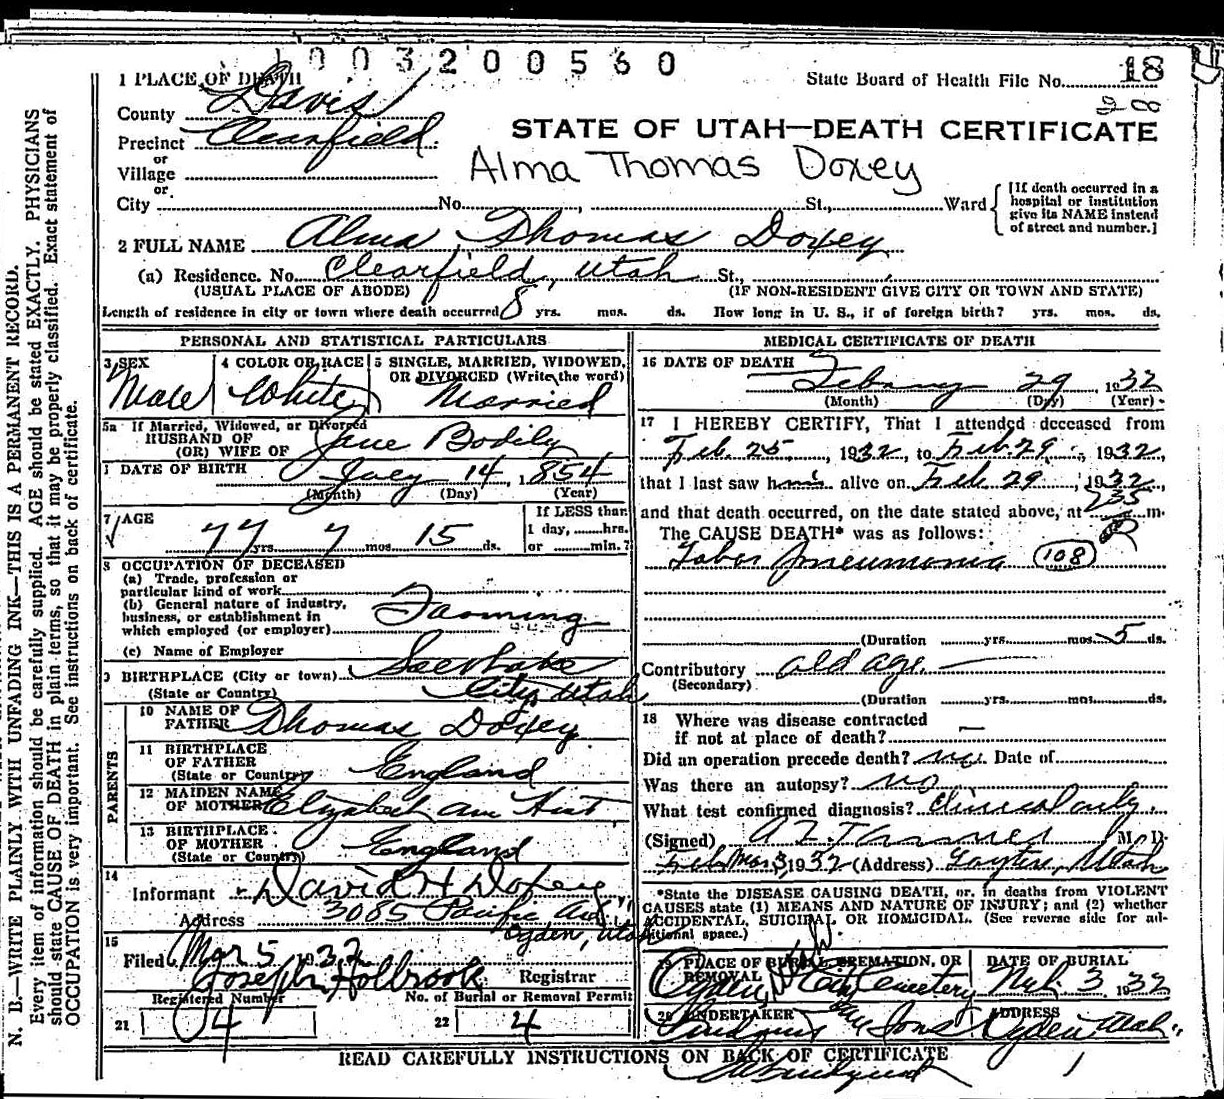 1003200560
1 PLACE OF DEATH
State Board of Health File No. 18
200
County Davis
Precinct Clearfield
STATE OF UTAH—DEATH CERTIFICATE
or
Village
Alma Thomas Doxey
or
City No. , St., Ward
[If death occurred in a hospital or institution give its NAME instead of street and number.]
2 FULL NAME Alma Thomas Doxey
(a) Residence. No. Clearfield, Utah St.,
(USUAL PLACE OF ABODE) (IF NON-RESIDENT GIVE CITY OR TOWN AND STATE)
Length of residence in city or town where death occurred 8 yrs. mos. ds. How long in U. S., if of foreign birth? yrs. mos. ds.
PERSONAL AND STATISTICAL PARTICULARS
3 SEX 4 COLOR OR RACE 5 SINGLE, MARRIED, WIDOWED,
OR DIVORCED (Write the word)
Male White Married
5a If Married, Widowed, or Divorced
HUSBAND OF
(OR) WIFE OF Jane Bodily
DATE OF BIRTH July 14, 1854
(Month) (Day) (Year)
7 AGE If LESS than
1 day, hrs.
77 yrs. 7 mos. 15 ds. or min.?
8 OCCUPATION OF DECEASED
(a) Trade, profession or
particular kind of work
(b) General nature of industry,
business, or establishment in
which employed (or employer) Farming
(c) Name of Employer
9 BIRTHPLACE (City or town) Salt Lake
(State or Country) City, Utah
PARENTS
10 NAME OF
FATHER Thomas Doxey
11 BIRTHPLACE
OF FATHER
(State or Country) England
12 MAIDEN NAME
OF MOTHER Elizabeth Ann Hunt
13 BIRTHPLACE
OF MOTHER
(State or Country) England
14
Informant David H Doxey
Address 3085 Pacific Ave
Ogden, Utah
15
Filed Mar 5 1932
Joseph Holbrook Registrar
Registered Number No. of Burial or Removal Permit
21 4 22 4
MEDICAL CERTIFICATE OF DEATH
16 DATE OF DEATH
February 29 1932
(Month) (Day) (Year)
17 I HEREBY CERTIFY, That I attended deceased from
Feb. 25, 1932, to Feb. 29, 1932,
that I last saw him alive on Feb. 29, 1932,
and that death occurred, on the date stated above, at 735 m.
The CAUSE DEATH* was as follows:
Lobar Pneumonia 108
(Duration yrs. mos. 5 ds.
Contributory old age.
(Secondary)
(Duration yrs. mos. ds.
18 Where was disease contracted
if not at place of death? —
Did an operation precede death? no. Date of
Was there an autopsy? no
What test confirmed diagnosis? clinical only.
(Signed) M. D.
Mar 3 1932 (Address) Layton, Utah
*State the DISEASE CAUSING DEATH, or, in deaths from VIOLENT
CAUSES state (1) MEANS AND NATURE OF INJURY; and (2) whether
ACCIDENTAL, SUICIDAL OR HOMICIDAL. (See reverse side for additional space.)
19 PLACE OF BURIAL, CREMATION, OR DATE OF BURIAL
REMOVAL
Ogden, Utah City Cemetery Mch. 3 1932
20 UNDERTAKER ADDRESS
Lindquist & Sons Ogden Utah
READ CAREFULLY INSTRUCTIONS ON BACK OF CERTIFICATE
N. B.—WRITE PLAINLY WITH UNFADING INK—THIS IS A PERMANENT RECORD.
Every item of information should be carefully supplied. AGE should be stated EXACTLY. PHYSICIANS
should state CAUSE OF DEATH in plain terms, so that it may be properly classified. Exact statement of
OCCUPATION is very important. See instructions on back of certificate.